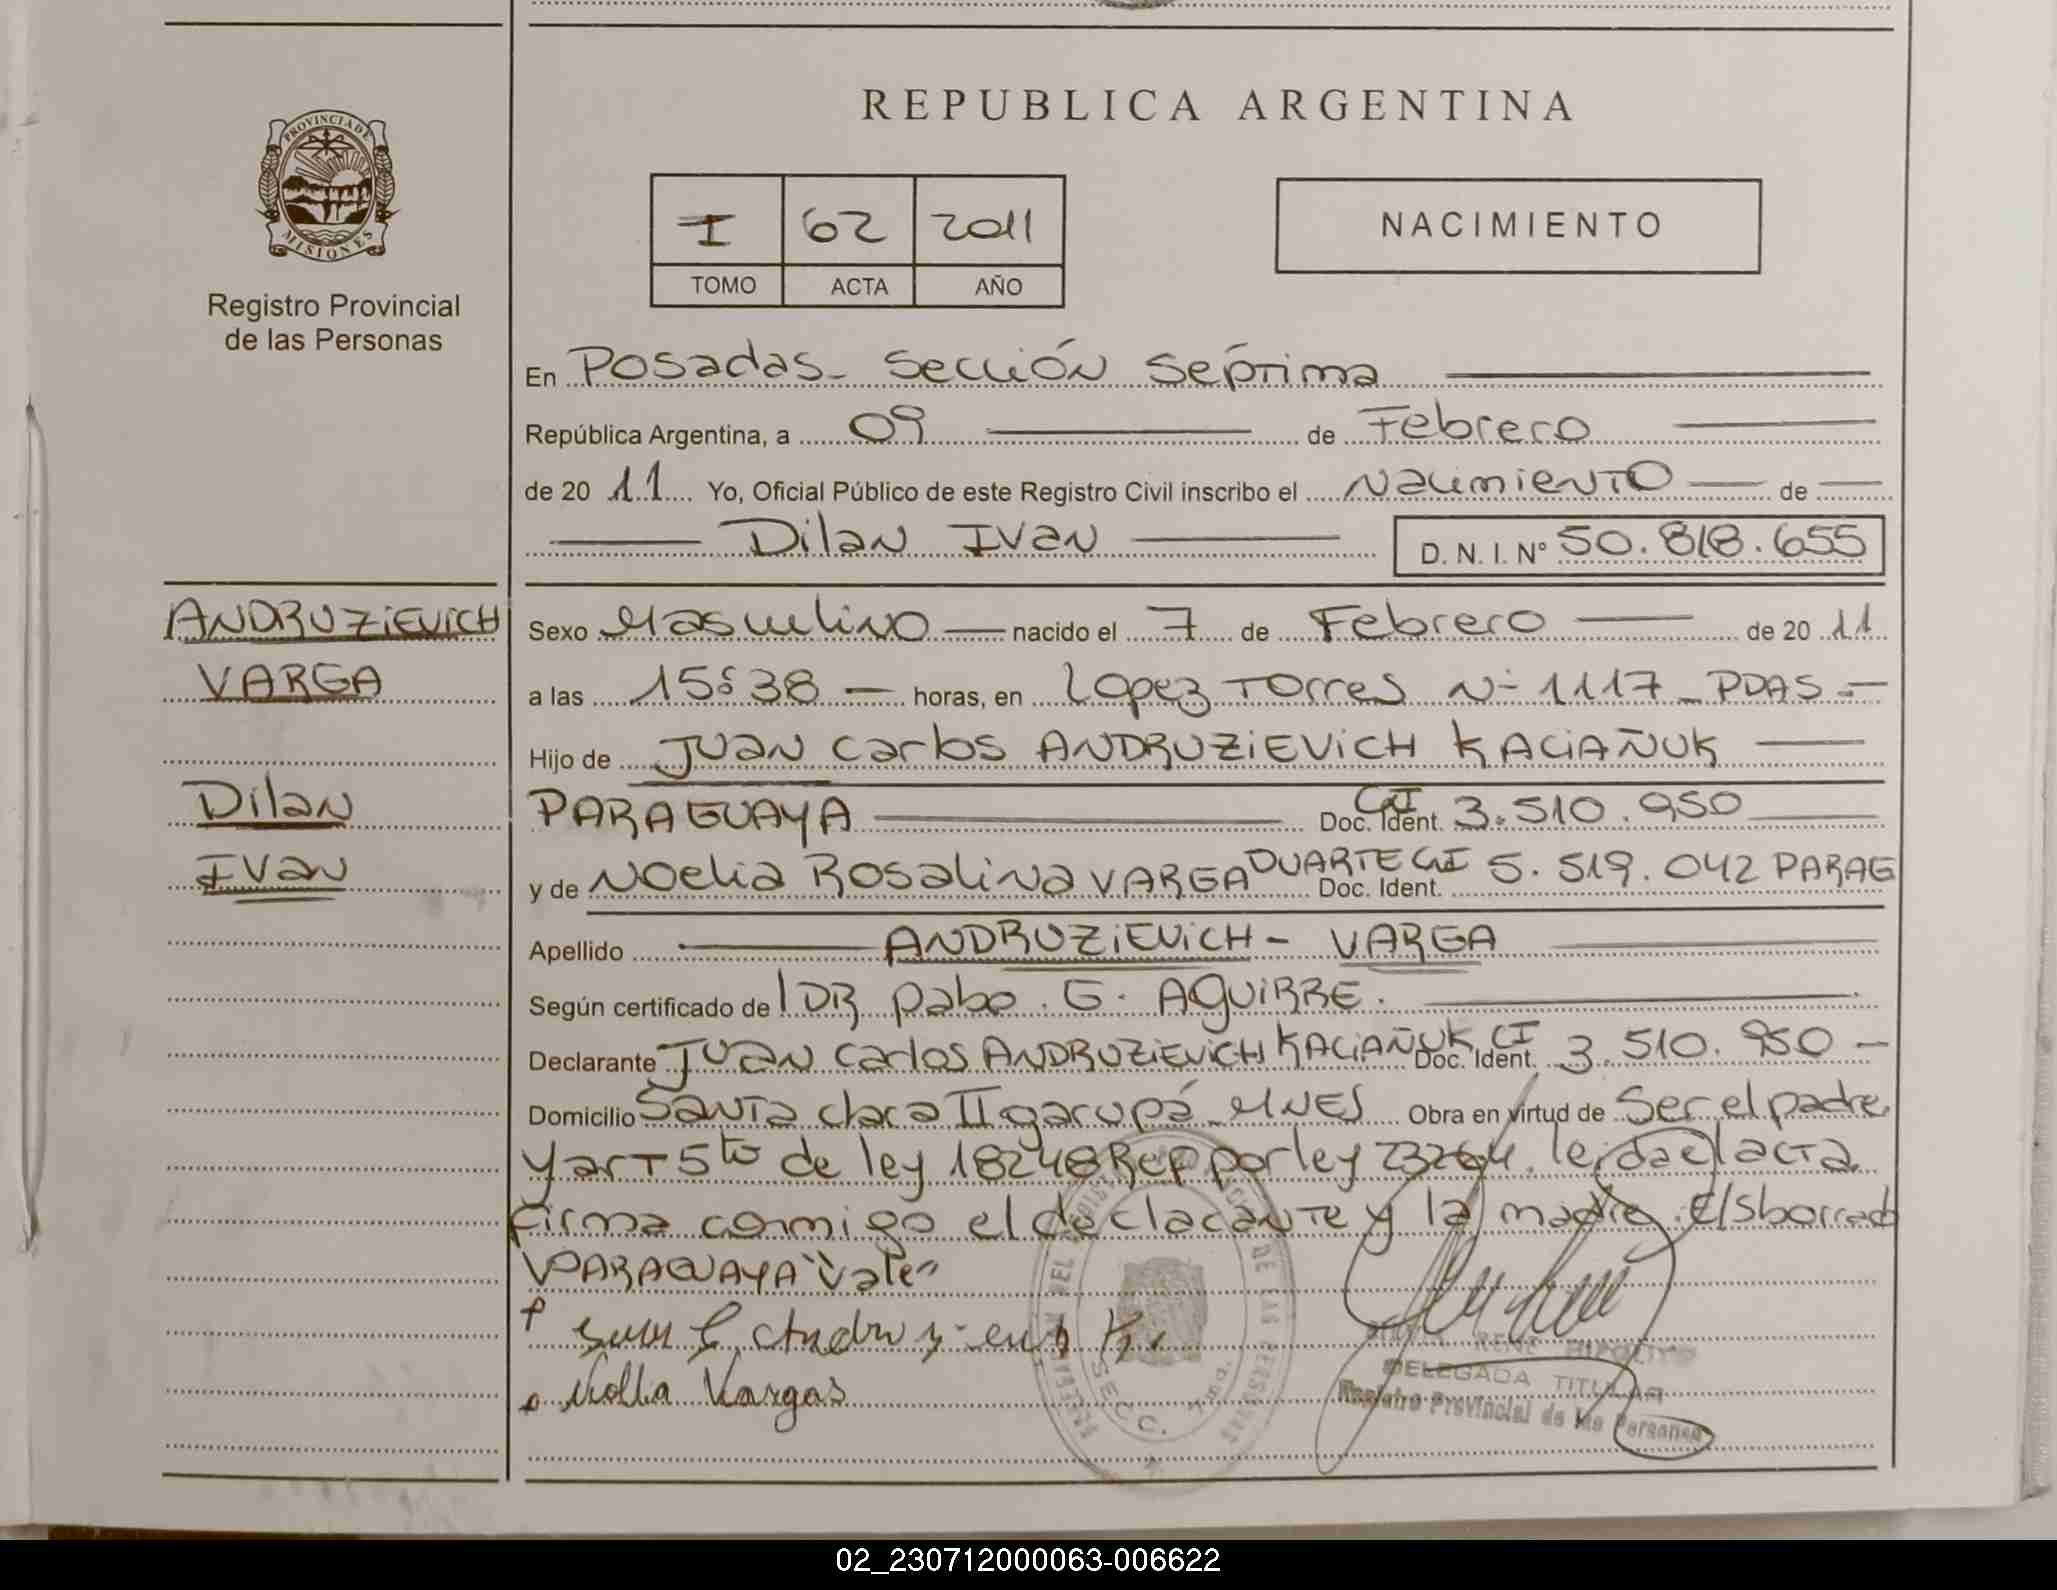 REPUBLICA ARGENTINA
PROVINCIA DE
MISIONES
Registro Provincial
de las Personas
I 62 2011
TOMO ACTA AÑO
NACIMIENTO
En Posadas - Sección Séptima
República Argentina, a 09 de Febrero
de 20 11 Yo, Oficial Público de este Registro Civil inscribo el Nacimiento de
Dilan Ivan D. N. I. Nº 50.818.655
ANDRUZiEViCH
VARGA
Dilan
Ivan
Sexo Masculino nacido el 7 de Febrero de 20 11
a las 15:38 horas, en Lopez Torres Nº 1117 - PDAS -
Hijo de Juan Carlos ANDRUZiEViCH KACiAÑUK
PARAGUAYA Doc. Ident. CI 3.510.950
y de Noelia Rosalina VARGA DUARTE Doc. Ident. CI 5.519.042 PARAG
Apellido ANDRUZiEViCH - VARGA
Según certificado de DR Pabo. G. AGUiRRE.
Declarante Juan Carlos ANDRUZiEViCH KACiAÑUK Doc. Ident. CI 3.510.950 -
Domicilio Santa Clara II garupá - MNES Obra en virtud de Ser el padre
y art 5to de ley 18248 Rep por ley 23264. leida el acta
firma conmigo el declarante y la madre. E/S borrado
PARAGUAYA "Vale"
Noelia Vargas
SECC. 7ma.
DELEGADA TITULAR
Registro Provincial de las Personas
02_230712000063-006622